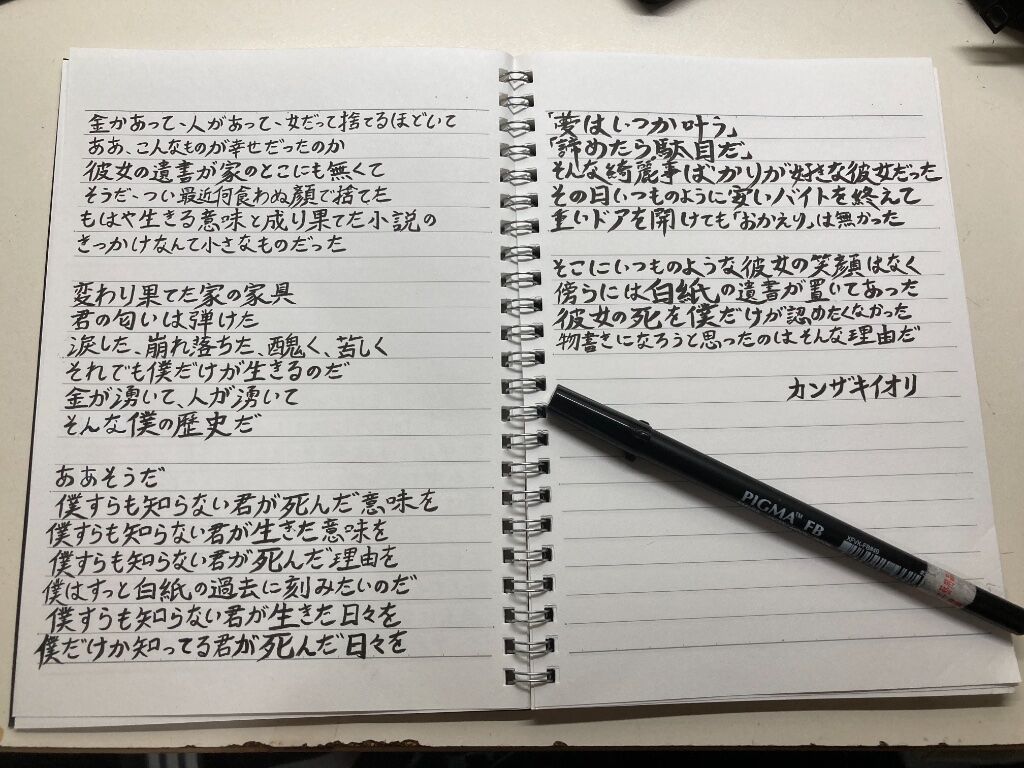 金があって、人があって、女だって捨てるほどいて
ああ、こんなものが幸せだったのか
彼女の遺書が家のどこにも無くて
そうだ、つい最近何食わぬ顔で捨てた
もはや生きる意味と成り果てた小説の
きっかけなんて小さなものだった
変わり果てた家の家具
君の匂いは弾けた
涙した、崩れ落ちた、醜く、苦しく
それでも僕だけが生きるのだ
金が湧いて、人が湧いて
そんな僕の歴史だ
ああそうだ
僕すらも知らない君が死んだ意味を
僕すらも知らない君が生きた意味を
僕すらも知らない君が死んだ理由を
僕はずっと白紙の過去に刻みたいのだ
僕すらも知らない君が生きた日々を
僕だけが知ってる君が死んだ日々を
「夢はいつか叶う」
「諦めたら駄目だ」
そんな綺麗事ばかりが好きな彼女だった
その日いつものように安いバイトを終えて
重いドアを開けても「おかえり」は無かった
そこにいつものような彼女の笑顔はなく
傍らには白紙の遺書が置いてあった
彼女の死を僕だけが認めたくなかった
物書きになろうと思ったのはそんな理由だ
カンザキイオリ
PIGMA™ FB